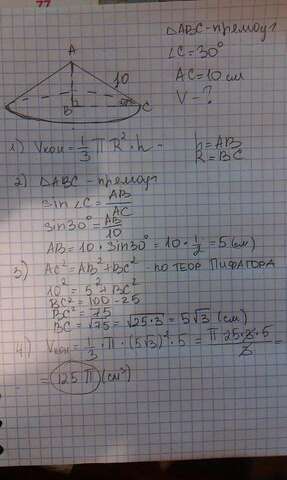 77
ΔABC - прямоуг
∠C = 30°
AC = 10 см
V - ?
A
10
B
C
1) Vкон = 1/3 π R² · h -
h = AB
R = BC
2) ΔABC - прямоуг
sin ∠C = AB/AC
sin 30° = AB/10
AB = 10 · sin 30° = 10 · 1/2 = 5 (см)
3) AC² = AB² + BC² - по теор Пифагора
10² = 5² + BC²
BC² = 100 - 25
BC² = 75
BC = √75 = √25·3 = 5√3 (см)
4) Vкон = 1/3 · π · (5√3)² · 5 = π·25·3·5/3 =
= 125 π (см³)